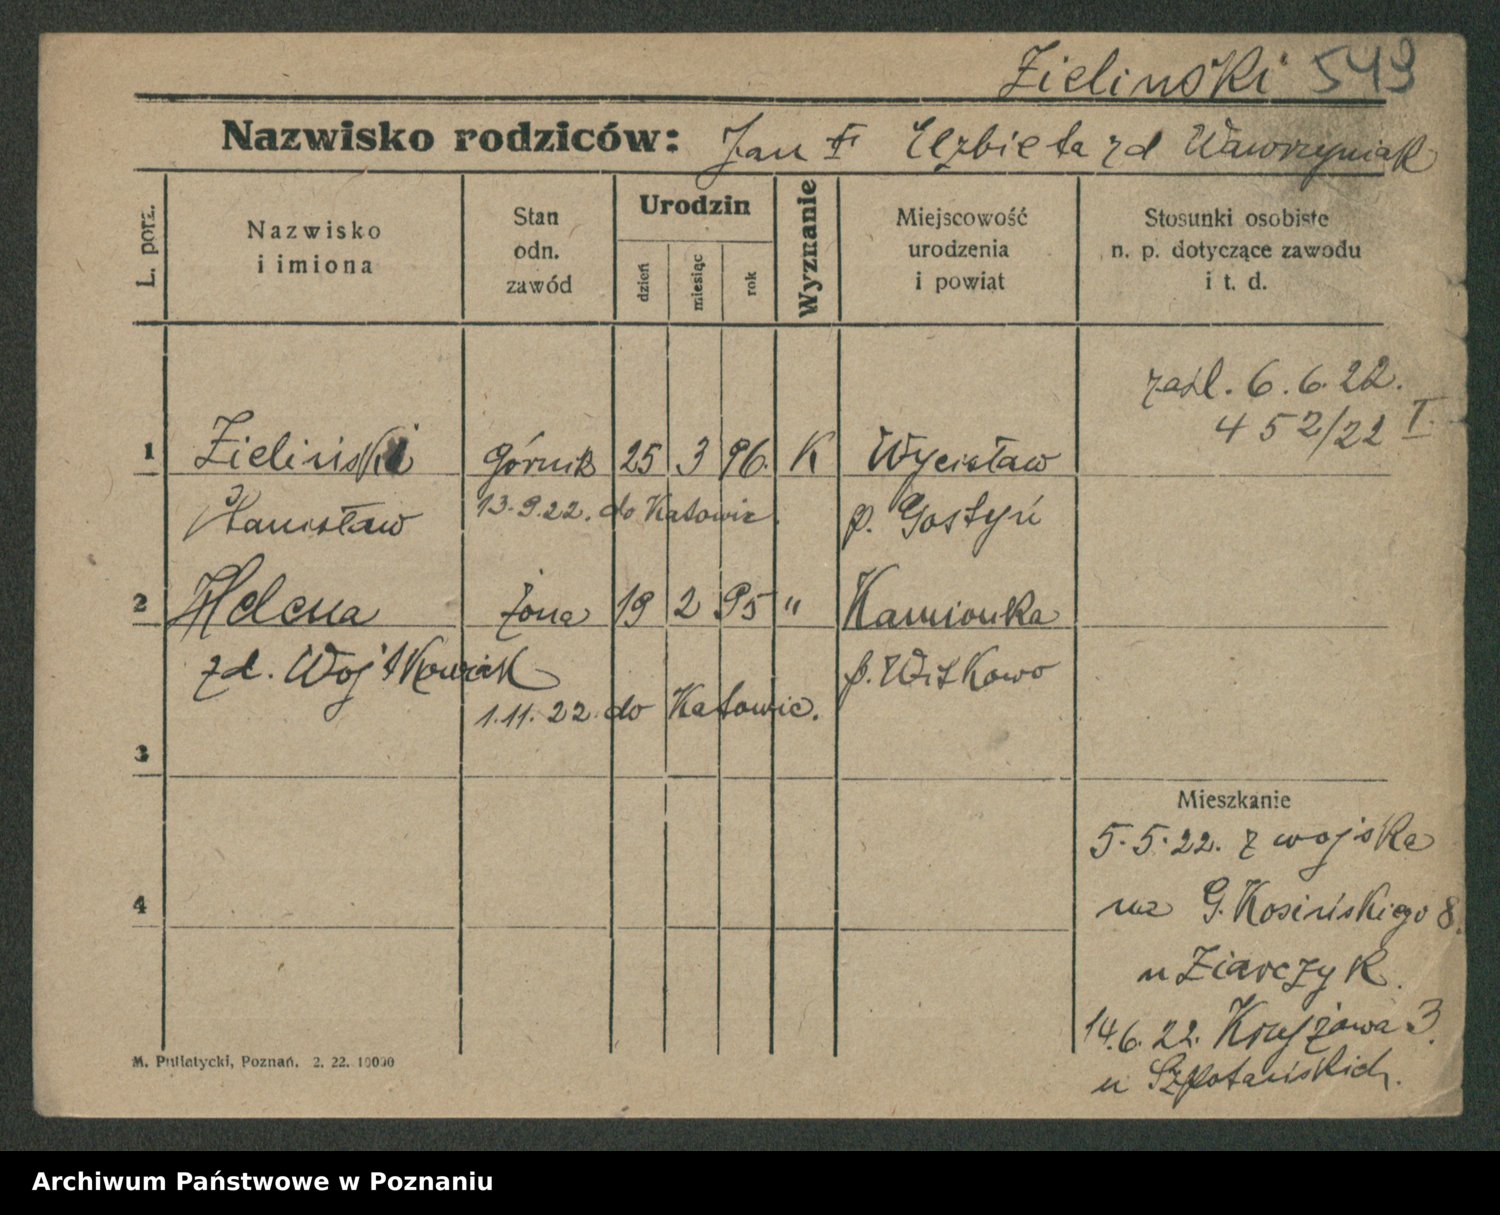 Zielinski 549
Nazwisko rodziców: Jan I Elzbieta zd Wawrzyniak
L. porz.
Nazwisko
i imiona
Stan
odn.
zawód
Urodzin
dzień
miesiąc
rok
Wyznanie
Miejscowość
urodzenia
i powiat
Stosunki osobiste
n. p. dotyczące zawodu
i t. d.
zaśl. 6.6.22.
452/22 I.
1 Zieliński górnik 25 3 96. K Wycisław
Stanisław 13.9.22. do Katowic. p. Gostyń
2 Helena żona 19 2 95 " Kamionka
zd. Wojtkowiak p. Witkowo
1.11.22. do Katowic.
3
Mieszkanie
5.5.22. z wojska
na G. Kosińskiego 8.
4
u Ziarczyk.
14.6.22. Krzyżowa 3.
u Szpotańskich.
M. Putiatycki, Poznań. 2. 22. 10000
Archiwum Państwowe w Poznaniu